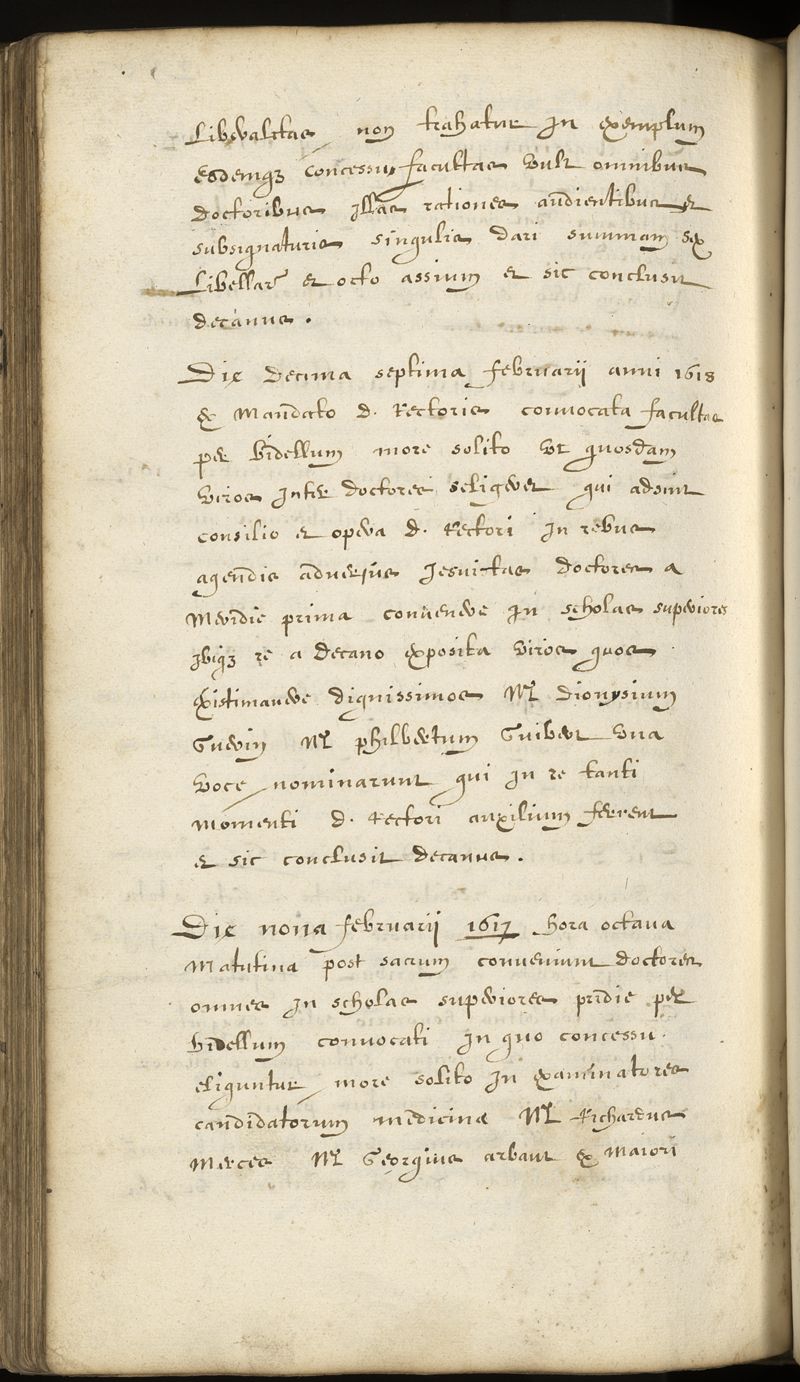 Liberalitas non trahatur in exemplum
eodemq3 concessu facultas vult omnibus
doctoribus illas rationes audientibus et
subsignaturis singulis dari summam sex
libellar' et octo assium et sic conclusit
decanus .
Die decima septima februarii anni 1618
ex mandato d. Rectoris convocata facultas
per bidellum more solito ut quosdam
viros inter doctores seligeret qui adsint
consilio et opera d. Rectori in rebus
agendis adversus Jesuitas doctores a
meridie prima convenere in scholas superiores
ibiq3 re a decano exposita viros quos
existimavere dignissimos Mr dionysium
Guerin Mr philbertum Guibert una
voce nominarunt qui in re tanti
momenti d. Rectori auxilium ferrent
et sic conclusit decanus .
Die nona februarii 1617 hora octava
matutina post sacrum conveniunt doctores
omnes in scholas superiores pridie per
bidellum convocati in quo concessu
eliguntur more solito in examinatores
candidatorum medicina Mr Richardus
merces Mr Georgius arbaut ex maiori